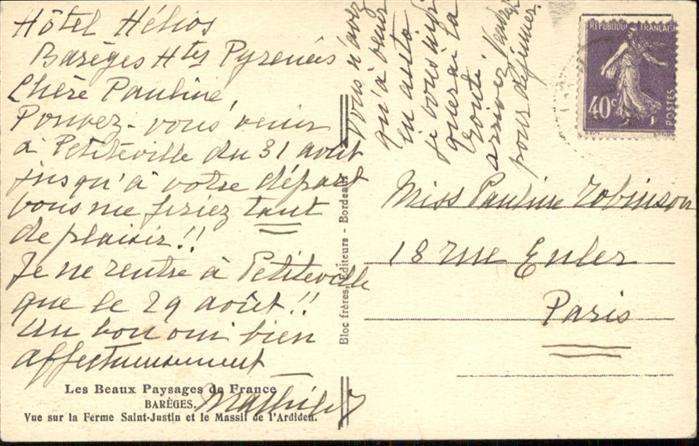 Hôtel Hélios
Barèges Htes Pyrenées
Chère Pauline,
Pouvez-vous venir
à Petiteville du 31 août
jusqu'à votre départ
vous me feriez tant
de plaisir!!
Je ne rentre à Petiteville
que le 29 août!!
Un bon oui bien
affectueusement
Mathilde
Vous n'avez
qu'à venir
en auto
je vous indi
querai la
route!
arrivez
pour déjeuner.
RÉPUBLIQUE FRANÇAISE
40c
POSTES
Miss Pauline Robinson
18 rue Euler
Paris
Bloc frères, Editeurs - Bordeaux
Les Beaux Paysages de France
BARÈGES.
Vue sur la Ferme Saint-Justin et le Massif de l'Ardiden.